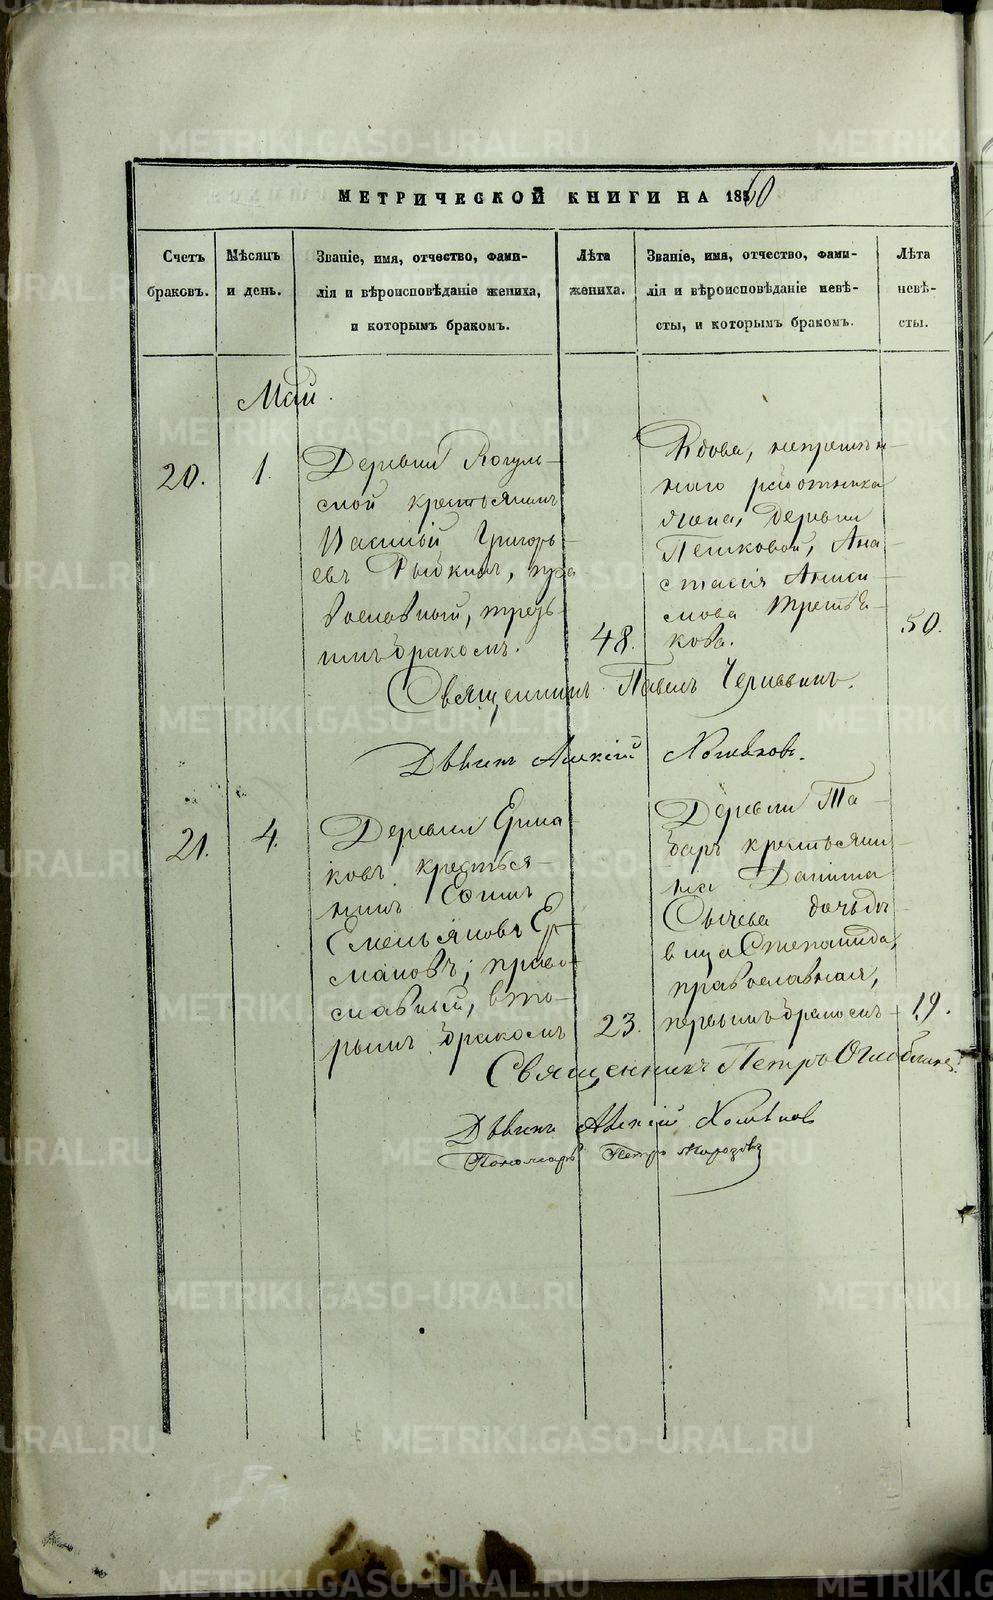 МЕТРИЧЕСКОЙ КНИГИ НА 1860
Счетъ браковъ.
Мѣсяцъ и день.
Званіе, имя, отчество, фами-
лія и вѣроисповѣданіе жениха,
и которымъ бракомъ.
Лѣта
жениха.
Званіе, имя, отчество, фами-
лія и вѣроисповѣданіе невѣ-
сты, и которымъ бракомъ.
Лѣта
невѣ-
сты.
Май.
20.
1.
Деревни Рогуль-
ской крестьянинъ
Василій Григорь-
евъ Рыбкинъ, пра
вославный, треть-
имъ бракомъ.
48.
Вдова, непремѣн-
наго работника
жена, деревни
Пешковой, Ана-
стасія Аниси-
мова Третья-
кова.
50.
Священникъ Павелъ Чернавинъ.
Дьячекъ Алексій Хомяковъ.
21.
4.
Деревни Ерма-
ковъ крестья-
нинъ Ефимъ
Емельяновъ Ер-
маковъ; право-
славный, вто-
рымъ бракомъ
23.
Деревни Та-
боръ крестьяни-
на Данила
Сычева дочь дѣ-
вица Степанида,
православная,
первымъ бракомъ
19.
Священникъ Петръ Оглоблинъ
Дьячекъ Алексій Хомяковъ
Пономарь Петръ Морозовъ
METRIKI.GASO-URAL.RU